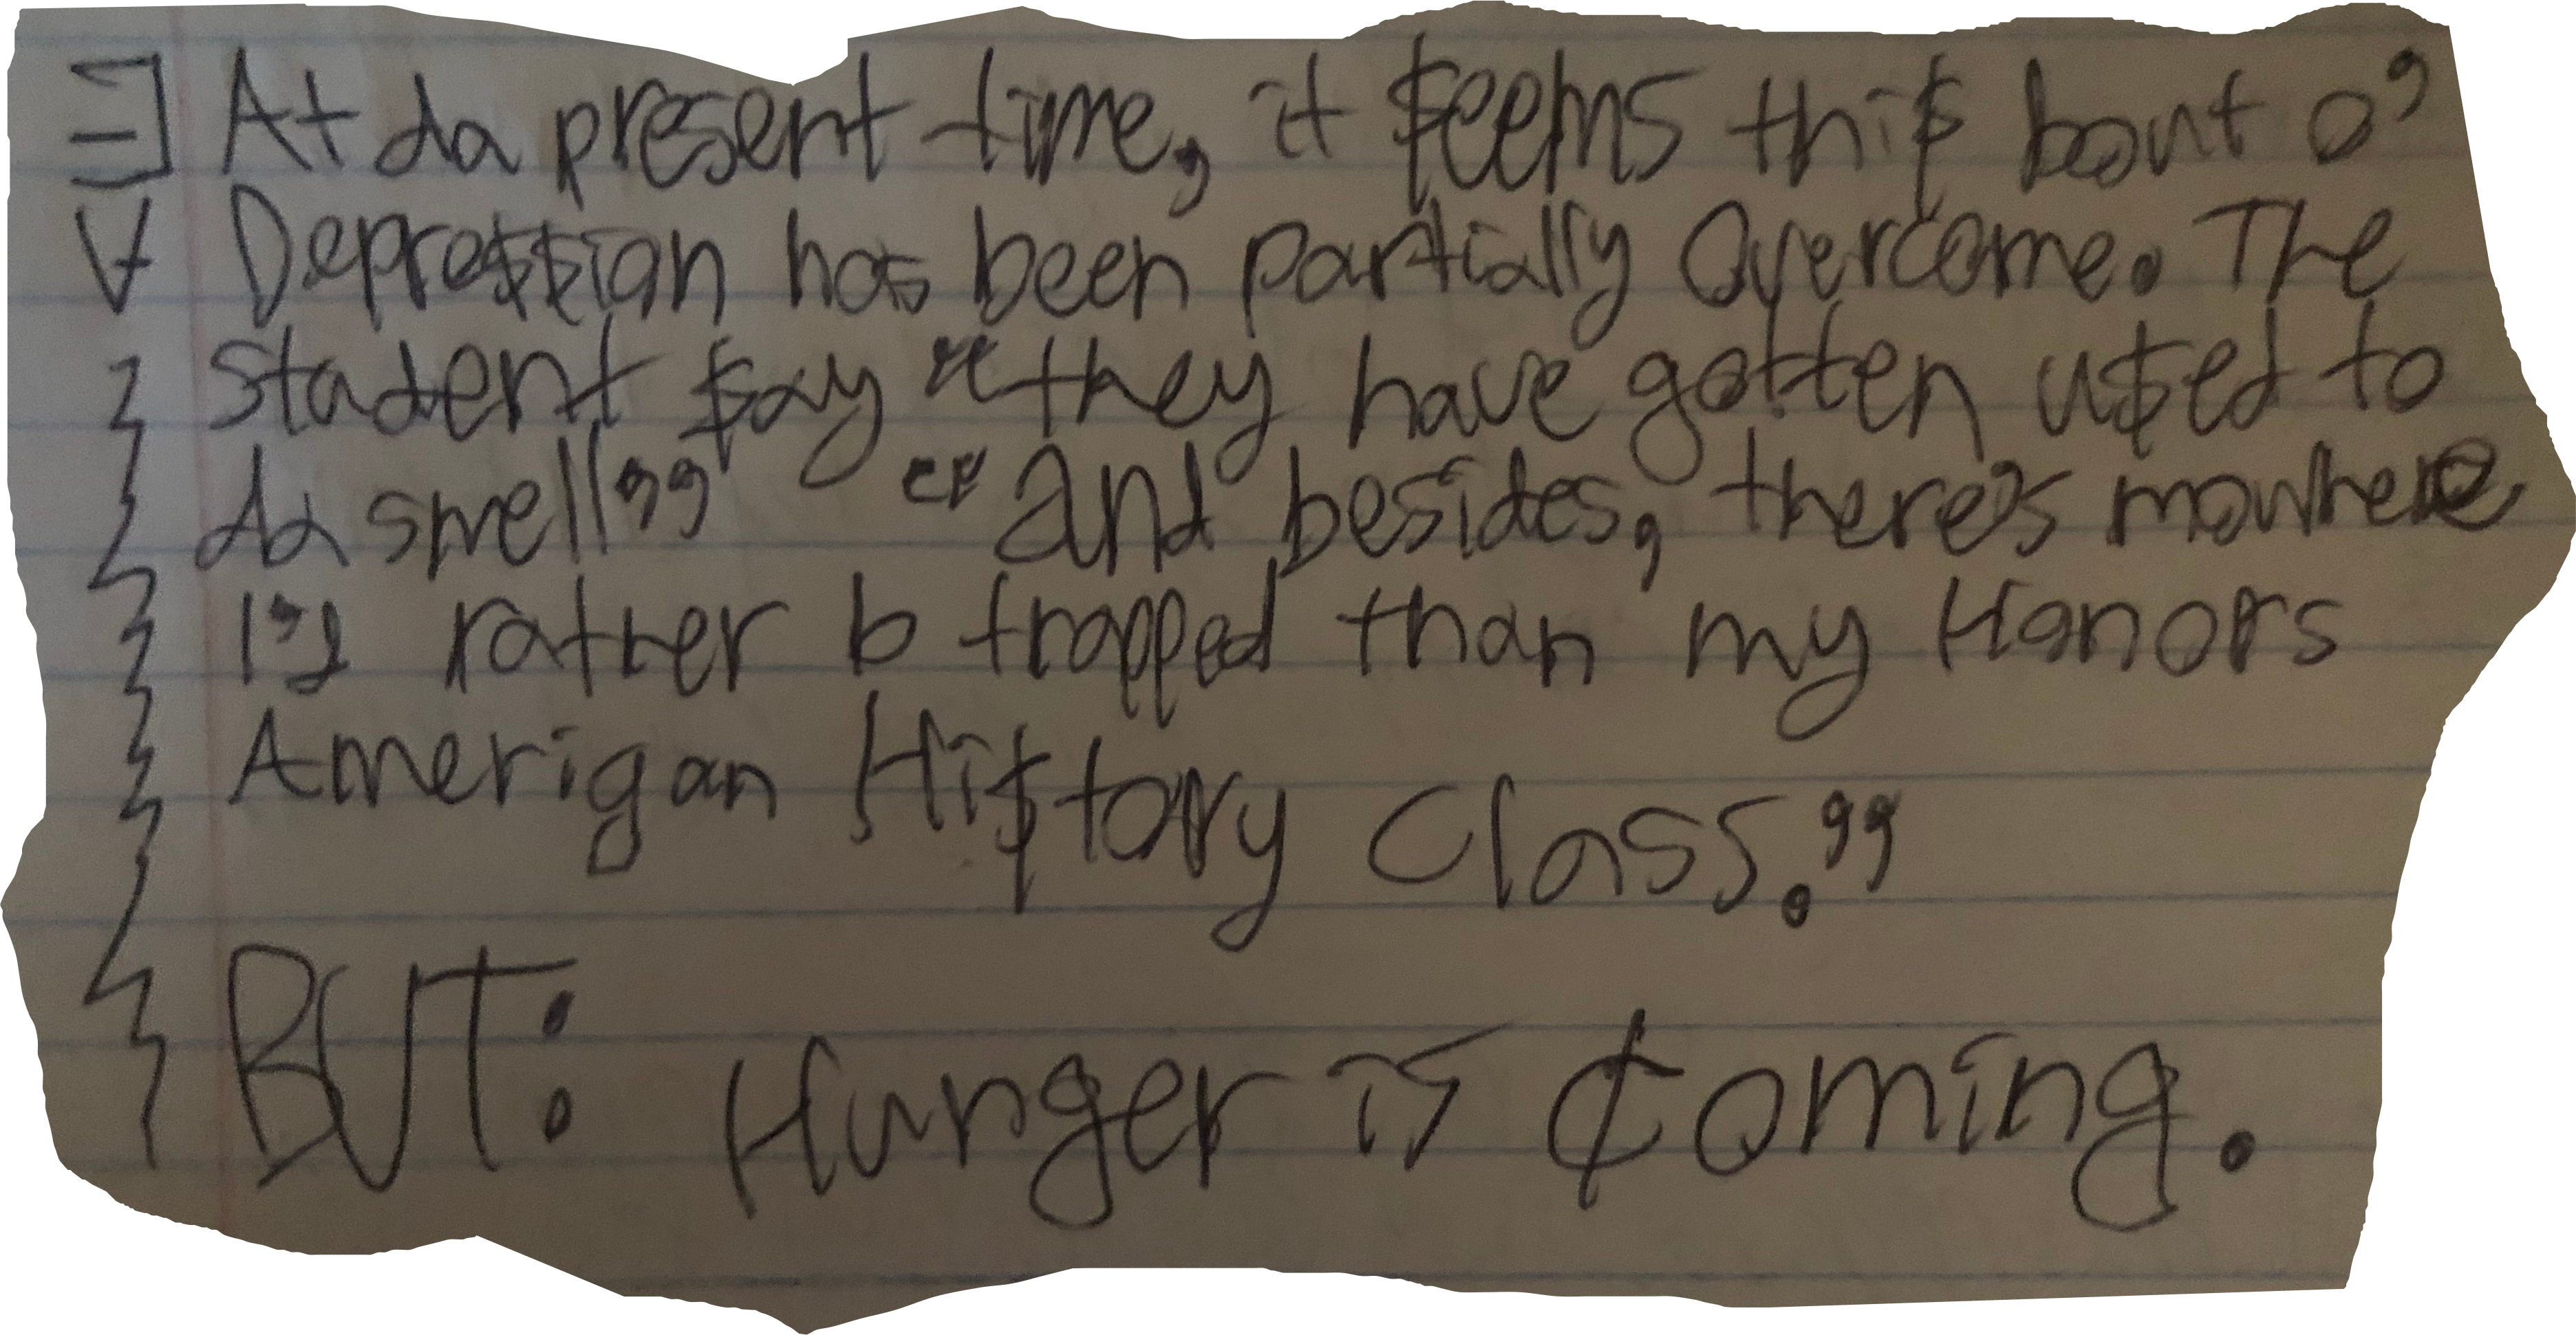 ∃ At da present time, it $eems thi$ bout o'
∀ Depre$$ion has been partially Overcome. The
student $ay "they have gotten u$ed to
da smell" "and besides, there's nowhere
I'd rather b trapped than my Honors
Amerigan Hi$tory Class."
BUT: Hunger is ₵oming.